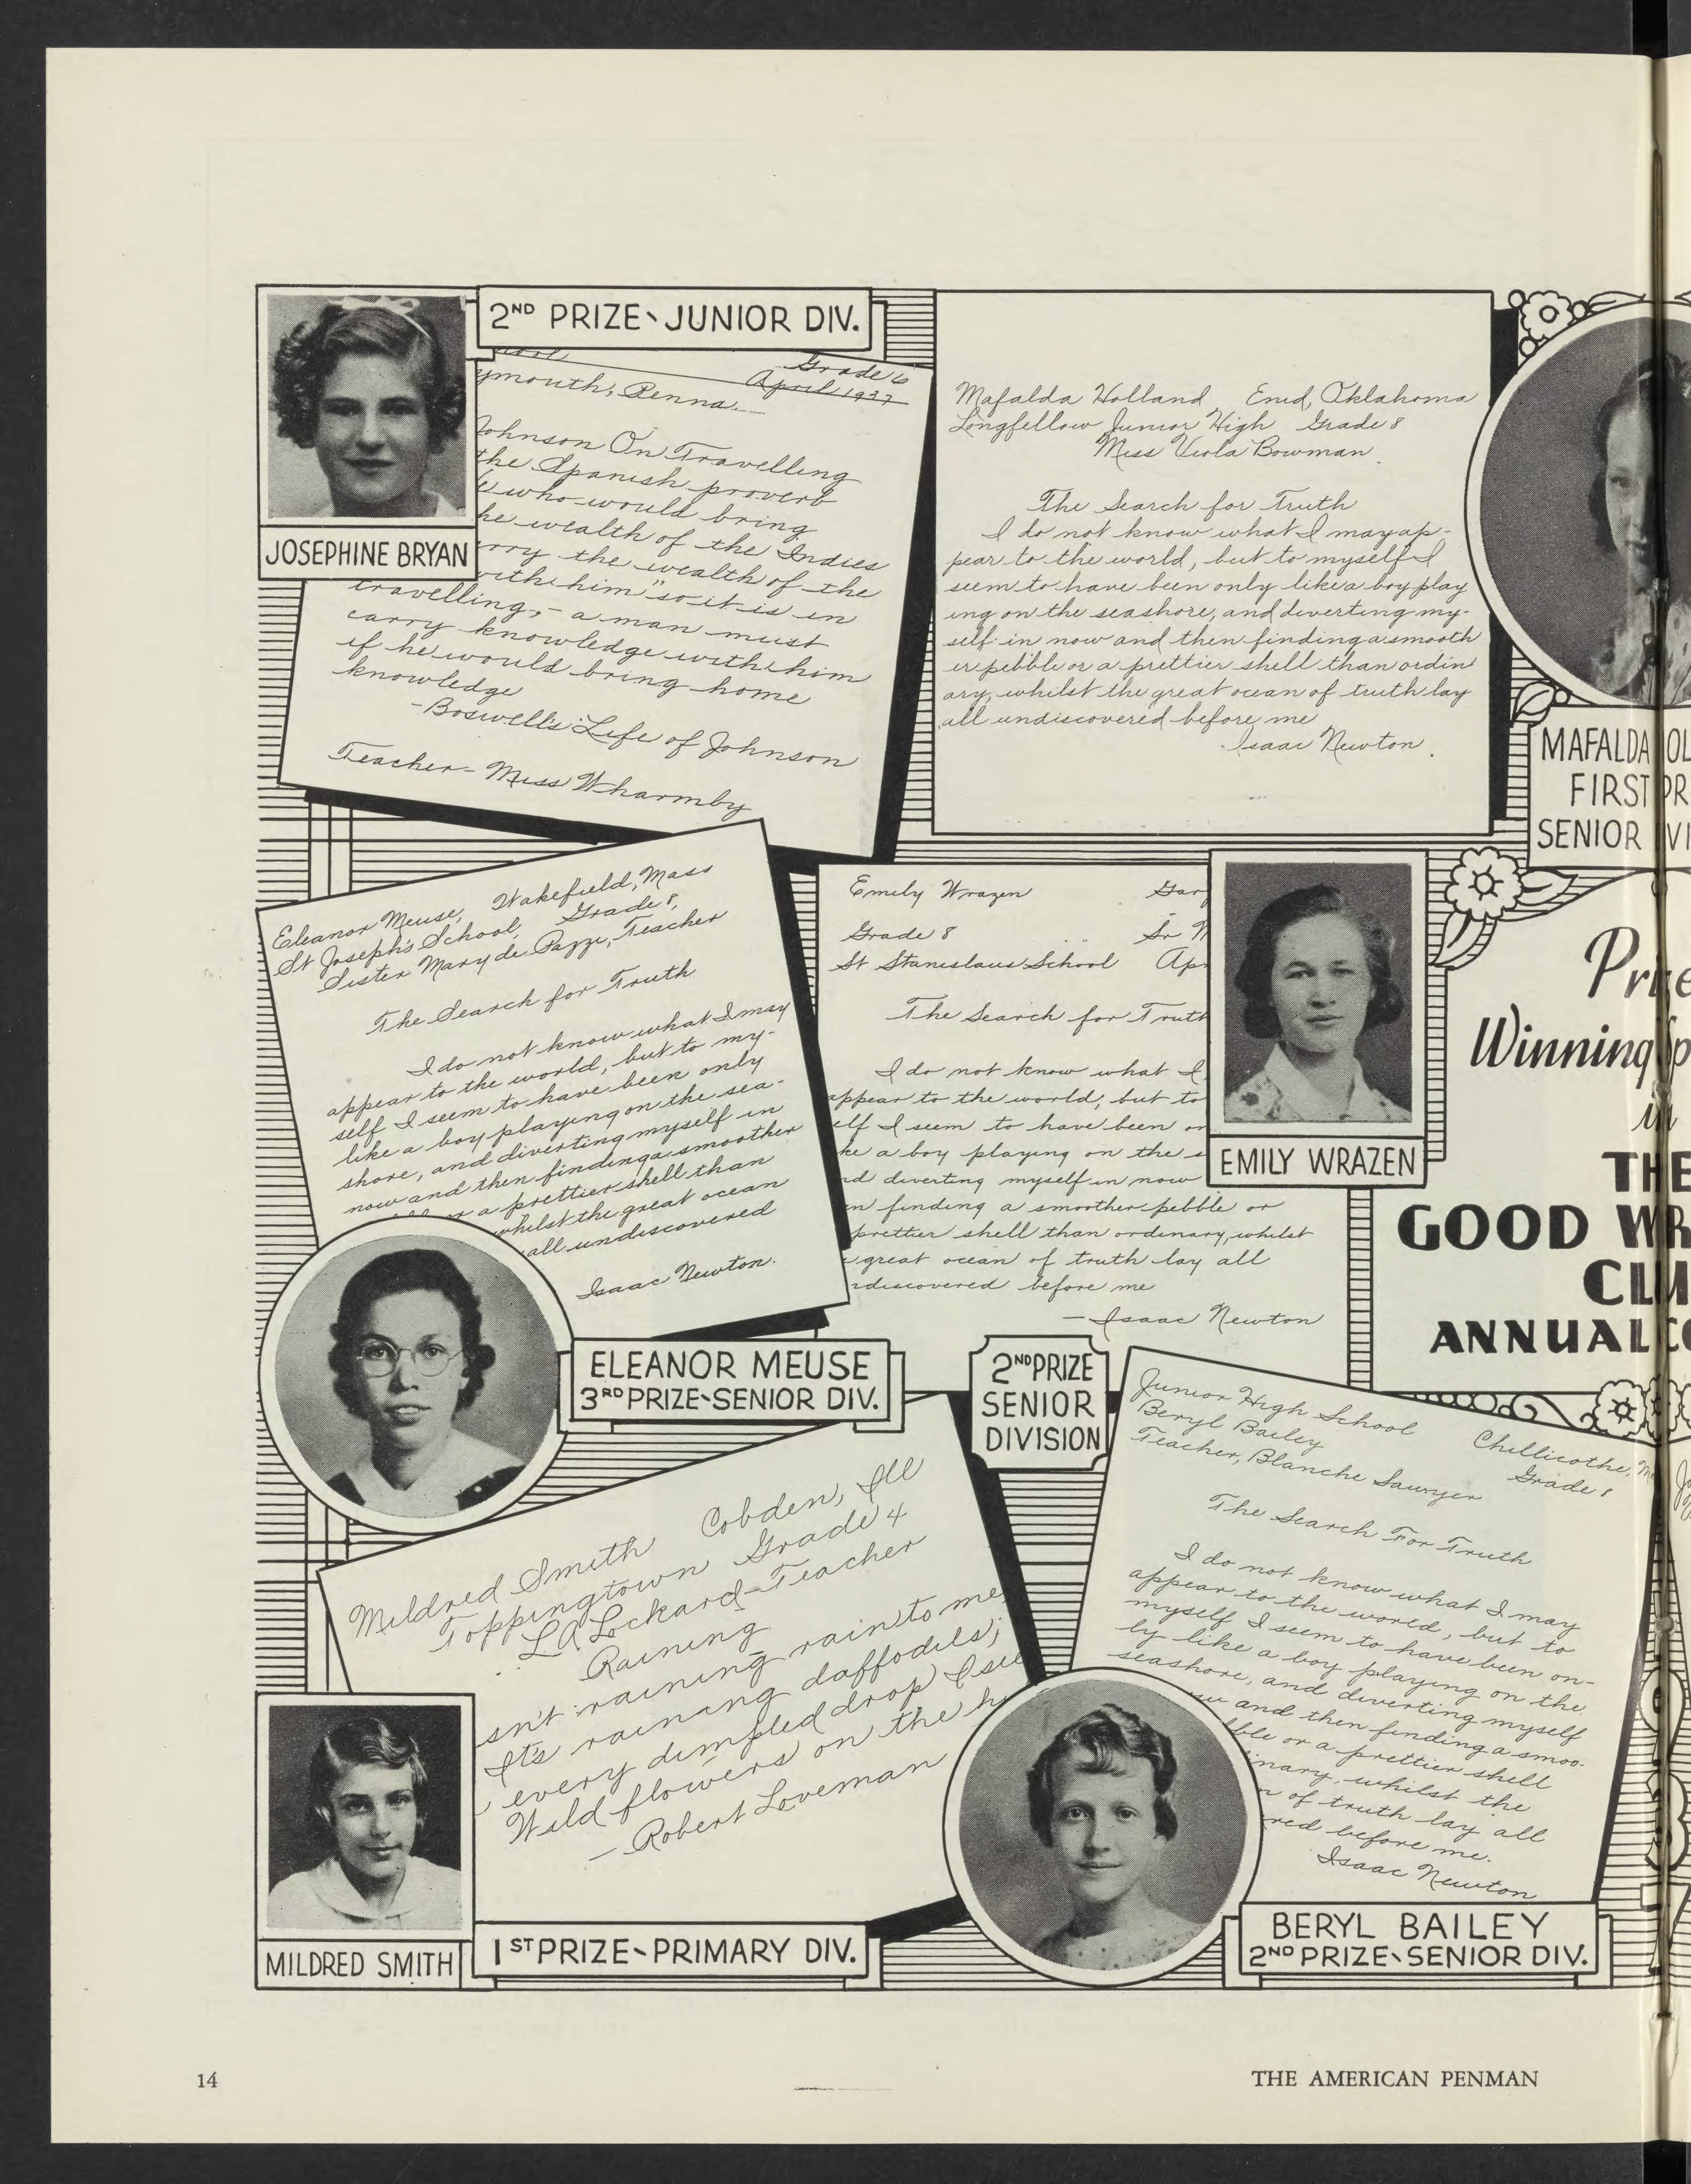 2ND PRIZE - JUNIOR DIV.
Grade 6
ymouth, Penna.
April 1937
Johnson On Travelling
the Spanish proverb
who would bring
he wealth of the Indies
rry the wealth of the
with him" so it is in
travelling, - a man must
carry knowledge with him
if he would bring home
knowledge
- Boswell's Life of Johnson
Teacher - Miss Wharmby
JOSEPHINE BRYAN
Mafalda Holland Enid, Oklahoma
Longfellow Junior High Grade 8
Miss Viola Bowman
The Search for Truth
I do not know what I may ap-
pear to the world, but to myself I
seem to have been only like a boy play
ing on the seashore, and diverting my-
self in now and then finding a smooth
er pebble or a prettier shell than ordin
ary, whilst the great ocean of truth lay
all undiscovered before me
Isaac Newton.
MAFALDA OL
FIRST PR
SENIOR VI
Eleanor Meuse, Wakefield, Mass
St Joseph's School, Grade 8,
Sister Mary de Pazzi, Teacher
The Search for Truth
I do not know what I may
appear to the world, but to my-
self I seem to have been only
like a boy playing on the sea-
shore, and diverting myself in
now and then finding a smoother
or a prettier shell than
whilst the great ocean
all undiscovered
Isaac Newton.
ELEANOR MEUSE
3RD PRIZE - SENIOR DIV.
Emily Wrazen Gar
Grade 8 Sr M
St Stanislaus School Ap
The Search for Trut
I do not know what I
appear to the world, but to
elf I seem to have been on
ke a boy playing on the s
nd diverting myself in now
n finding a smoother pebble or
prettier shell than ordinary, whilst
great ocean of truth lay all
ndiscovered before me
- Isaac Newton
EMILY WRAZEN
2ND PRIZE
SENIOR
DIVISION
Prize
Winning
in
THE
GOOD WR
CLU
ANNUAL CO
Mildred Smith Cobden, Ill
Toppingtown Grade 4
L A Lockard - Teacher
Raining
sn't raining rain to me,
It's raining daffodils;
every dimpled drop I see
Wild flowers on the h
- Robert Loveman
MILDRED SMITH
1ST PRIZE - PRIMARY DIV.
Junior High School Chillicothe, M
Beryl Bailey Grade 8
Teacher, Blanche Sawyer
The Search For Truth
I do not know what I may
appear to the world, but to
myself I seem to have been on-
ly like a boy playing on the
seashore, and diverting myself
and then finding a smoo-
ble or a prettier shell
inary, whilst the
n of truth lay all
red before me.
Isaac Newton
BERYL BAILEY
2ND PRIZE - SENIOR DIV.
14
THE AMERICAN PENMAN